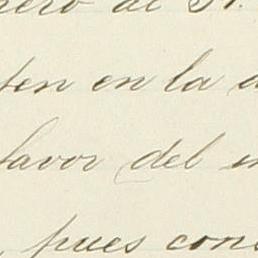 nero de
ten en la
favor del
pues cons